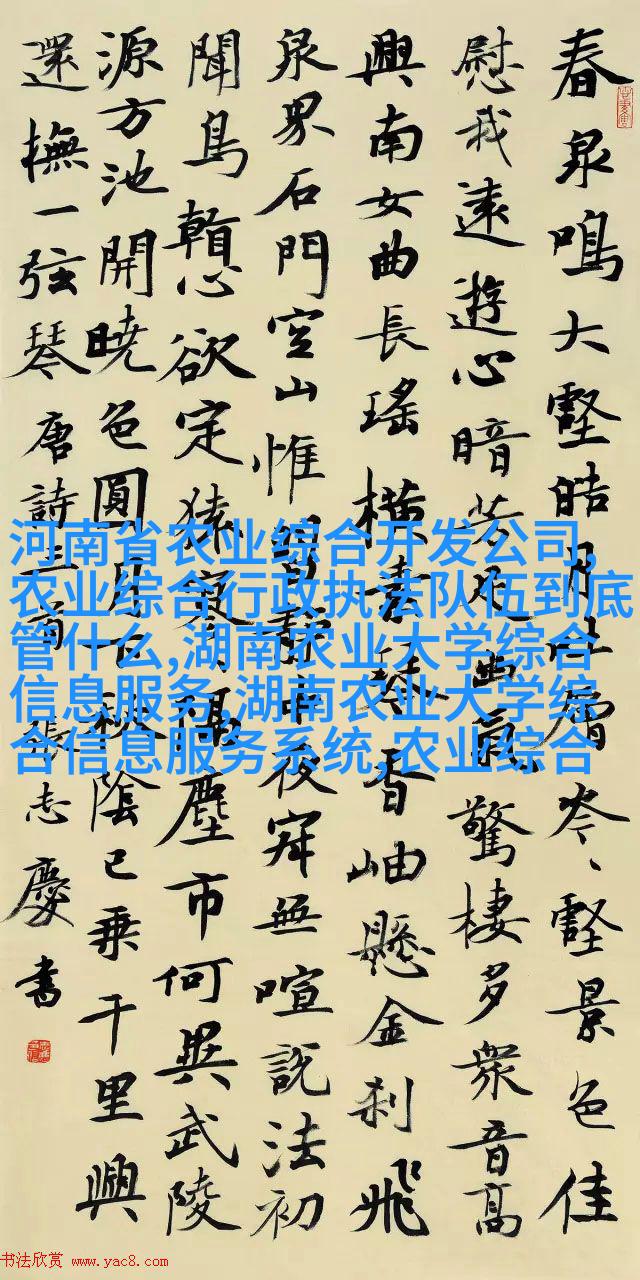 春泉鳴大壑皓月吐層岑岑壑景色佳
慰我遠遊心暗芳足幽氣驚棲多衆音高
興南女曲長瑤橫素琴香岫懸金刹飛
泉界石門空山惟習靜中夜寂無喧說法初
聞鳥心欲定猿隔塵市何異武陵
源方池開曉色圓月下秋陰已乘千里興
還撫一弦琴唐詩二首張志慶書
河南省农业综合开发公司,
农业综合行政执法队伍到底
管什么,湖南农业大学综合
信息服务,湖南农业大学综
合信息服务系统,农业综合
书法欣赏 www.yac8.com